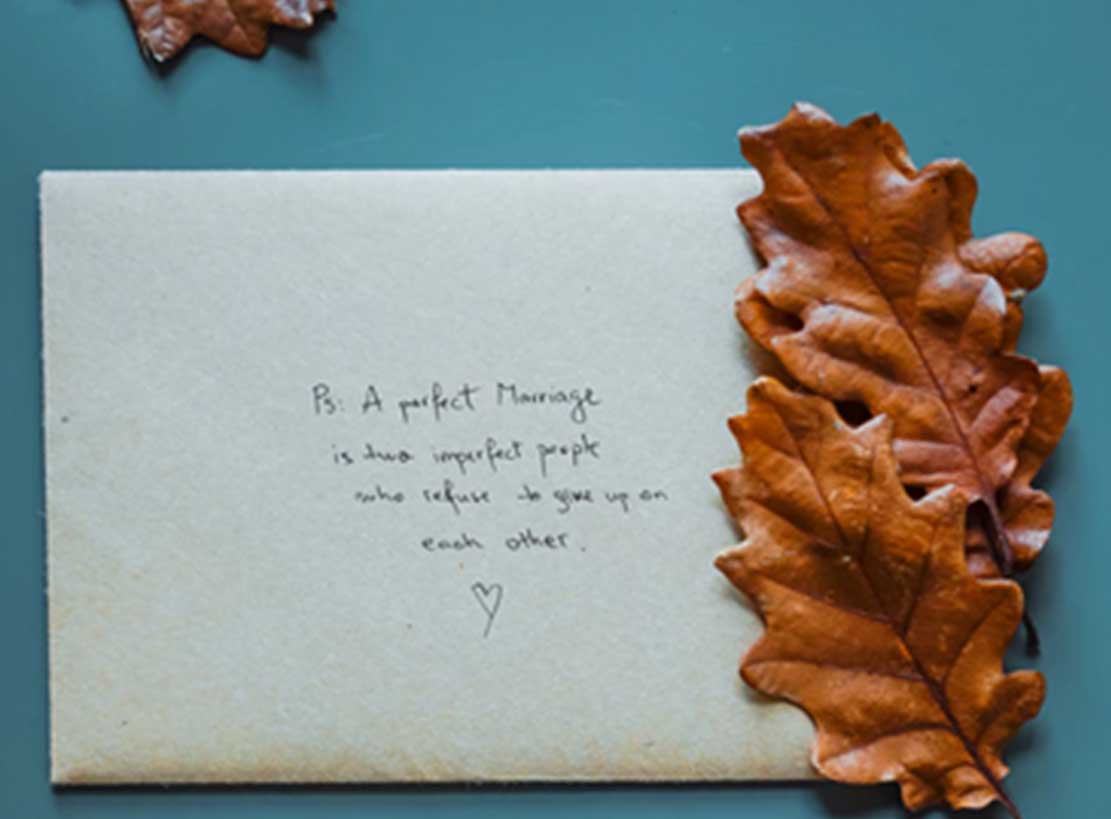 Ps: A perfect Marriage
is two imperfect people
who refuse to give up on
each other.